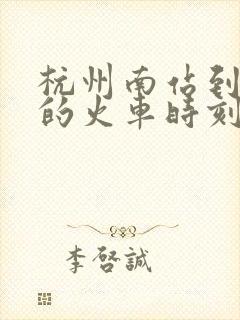 杭州南佔到
的火車時刻
李啓誠